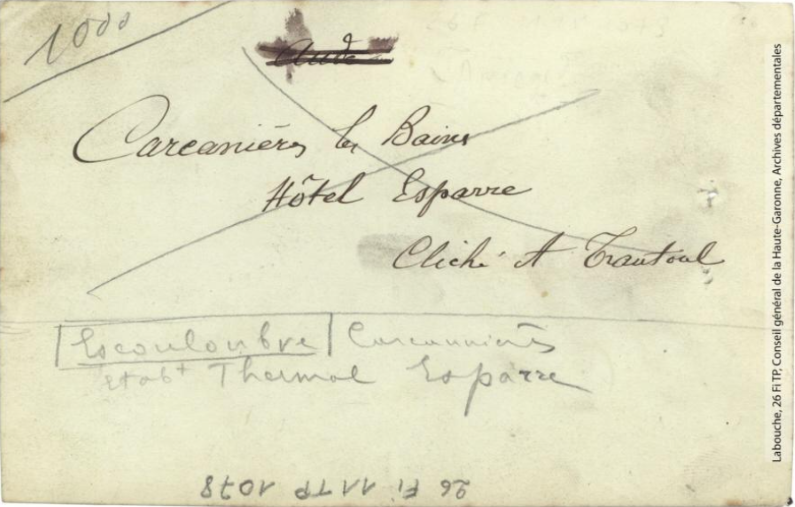 1000
Aude
Carcanières les Bains
Hôtel Esparre
Cliché A Trantoul
Escouloubre Carcannières
Etabt Thermal Esparre
26 Fi 11 TP 1078
Labouche, 26 Fi TP, Conseil général de la Haute-Garonne, Archives départementales